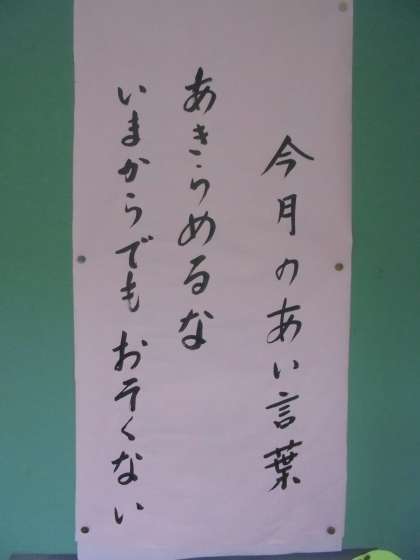 今月のあい言葉
あきらめるな
いまからでも おそくない